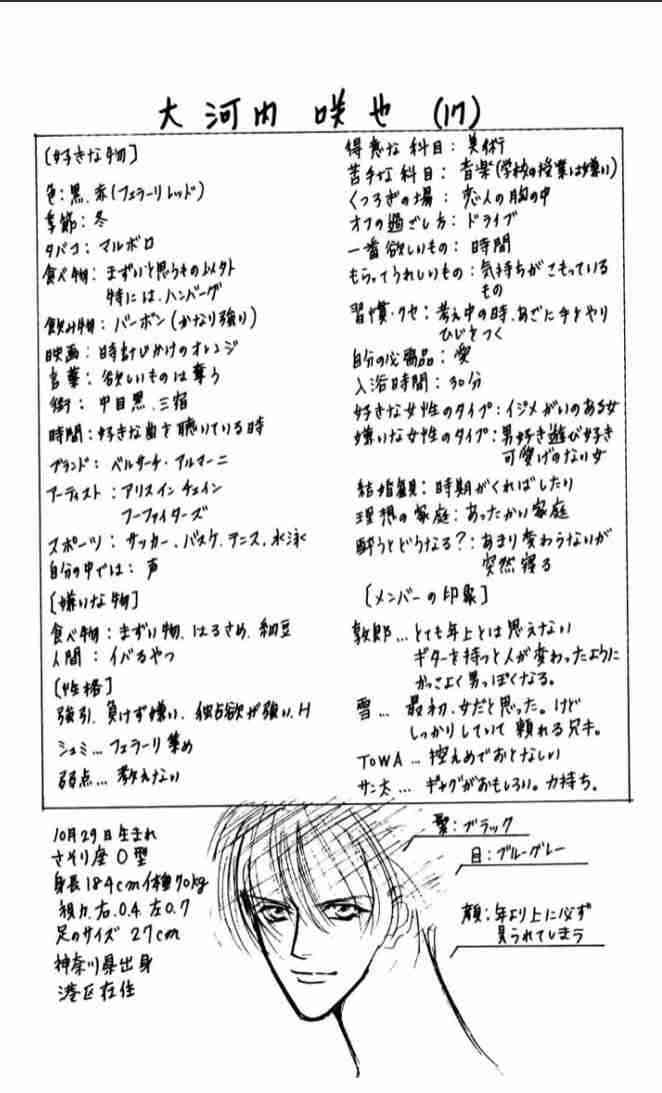 大河内 咲也 (17)
[好きな物]
色：黒、赤(フェラーリレッド)
季節：冬
タバコ：マルボロ
食べ物：まずいと思うもの以外
特には、ハンバーグ
飲み物：バーボン(かなり強い)
映画：時計じかけのオレンジ
言葉：欲しいものは奪う
街：中目黒、三宿
時間：好きな曲を聴いている時
ブランド：ベルサーチ・アルマーニ
アーティスト：アリスインチェイン
フーファイターズ
スポーツ：サッカー、バスケ、テニス、水泳
自分の中では：声
[嫌いな物]
食べ物：まずい物、はるさめ、納豆
人間：イバるやつ
[性格]
強引、負けず嫌い、独占欲が強い、H
シュミ…フェラーリ集め
弱点…教えない
得意な科目：美術
苦手な科目：音楽(学校の授業は嫌い)
くつろぎの場：恋人の胸の中
オフの過ごし方：ドライブ
一番欲しいもの：時間
もらってうれしいもの：気持ちがこもっている
もの
習慣・クセ：考え中の時、あごに手をやり
ひじをつく
自分の必需品：愛
入浴時間：30分
好きな女性のタイプ：イジメがいのある女
嫌いな女性のタイプ：男好き遊び好き
可愛げのない女
結婚観：時期がくればしたい
理想の家庭：あったかい家庭
酔うとどうなる？：あまり変わらないが
突然寝る
[メンバーの印象]
敦郎…とても年上とは思えない
ギターを持つと人が変わったように
かっこよく男っぽくなる。
雪…最初、女だと思った。けど
しっかりしていて頼れる兄キ。
TOWA…控えめでおとなしい
サン太…ギャグがおもしろい。力持ち。
10月29日生まれ
さそり座O型
身長184cm体重70kg
視力、右、0.4 左0.7
足のサイズ 27cm
神奈川県出身
港区在住
髪：ブラック
目：ブルーグレー
顔：年より上に必ず
見られてしまう